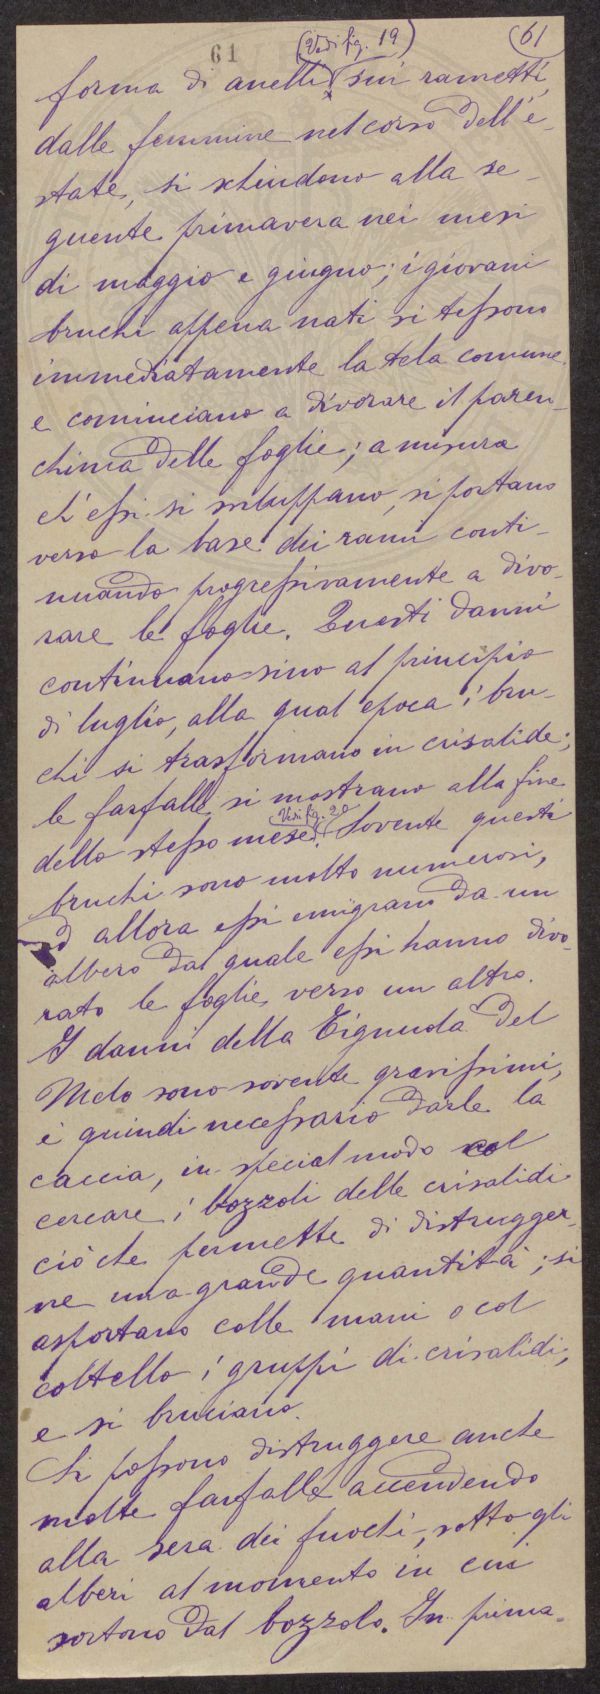 61 (Vedi fig. 19) (61
forma di anelli sui rametti,
dalle femmine nel corso dell'e-
state, si schiudono alla se-
guente primavera nei mesi
di maggio e giugno; i giovani
bruchi appena nati si tessono
immediatamente la tela comune
e cominciano a divorare il paren-
chima delle foglie; a misura
ch'essi si sviluppano, si portano
verso la base dei rami conti-
nuando progressivamente a divo-
rare le foglie. Questi danni
continuano sino al principio
di luglio, alla qual epoca i bru-
chi si trasformano in crisalide;
le farfalle si mostrano alla fine
dello stesso mese. (Vedi fig. 20 Sovente questi
bruchi sono molto numerosi,
ed allora essi emigrano da un
albero dal quale essi hanno divo-
rato le foglie verso un altro.
I danni della Tignuola del
Melo sono sovente gravissimi,
è quindi necessario darle la
caccia, in special modo col
cercare i bozzoli delle crisalidi
ciò che permette di distrugger-
ne una grande quantità; si
asportano colle mani o col
coltello i gruppi di crisalidi,
e si bruciano.
Si possono distruggere anche
molte farfalle accendendo
alla sera dei fuochi, sotto gli
alberi al momento in cui
sortono dal bozzolo. In prima-